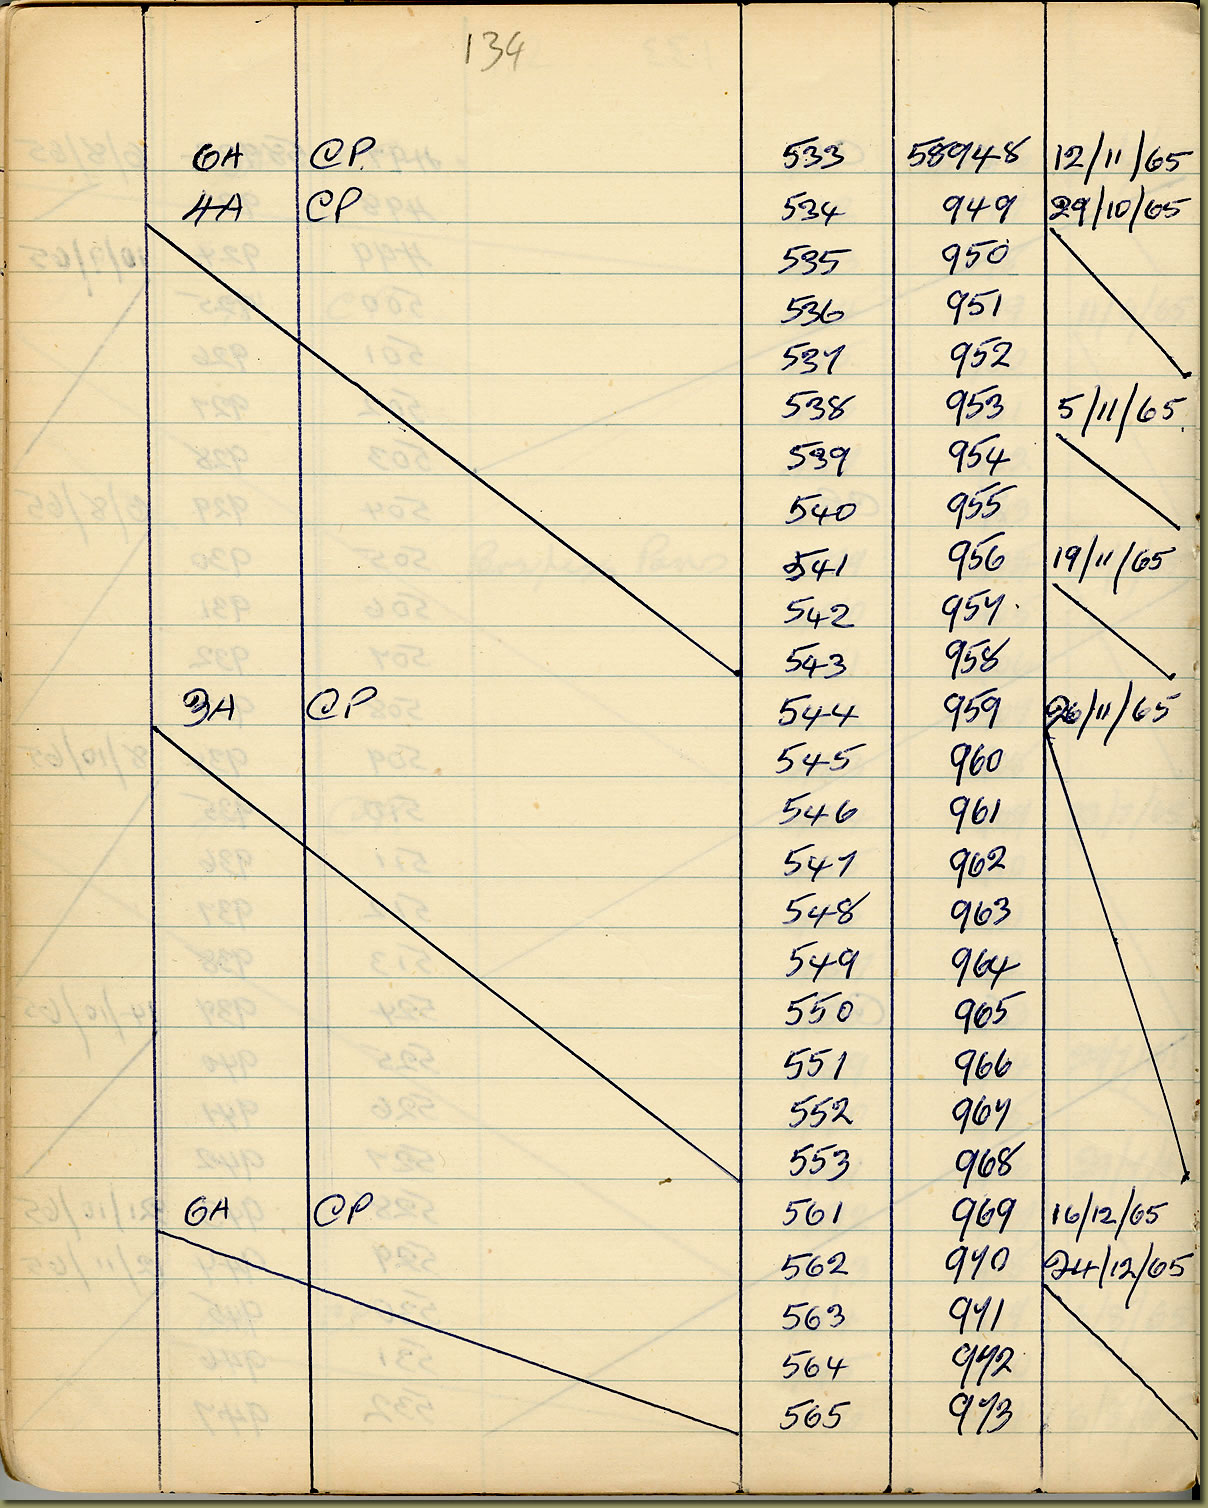 134
6A CP. 533 58948 12/11/65
4A CP 534 949 29/10/65
535 950
536 951
537 952
538 953 5/11/65.
539 954
540 955
541 956 19/11/65
542 957.
543 958
3A CP 544 959 26/11/65
545 960
546 961
547 962
548 963
549 964
550 965
551 966
552 967
553 968
6A CP 561 969 16/12/65
562 970 24/12/65
563 971
564 972
565 973